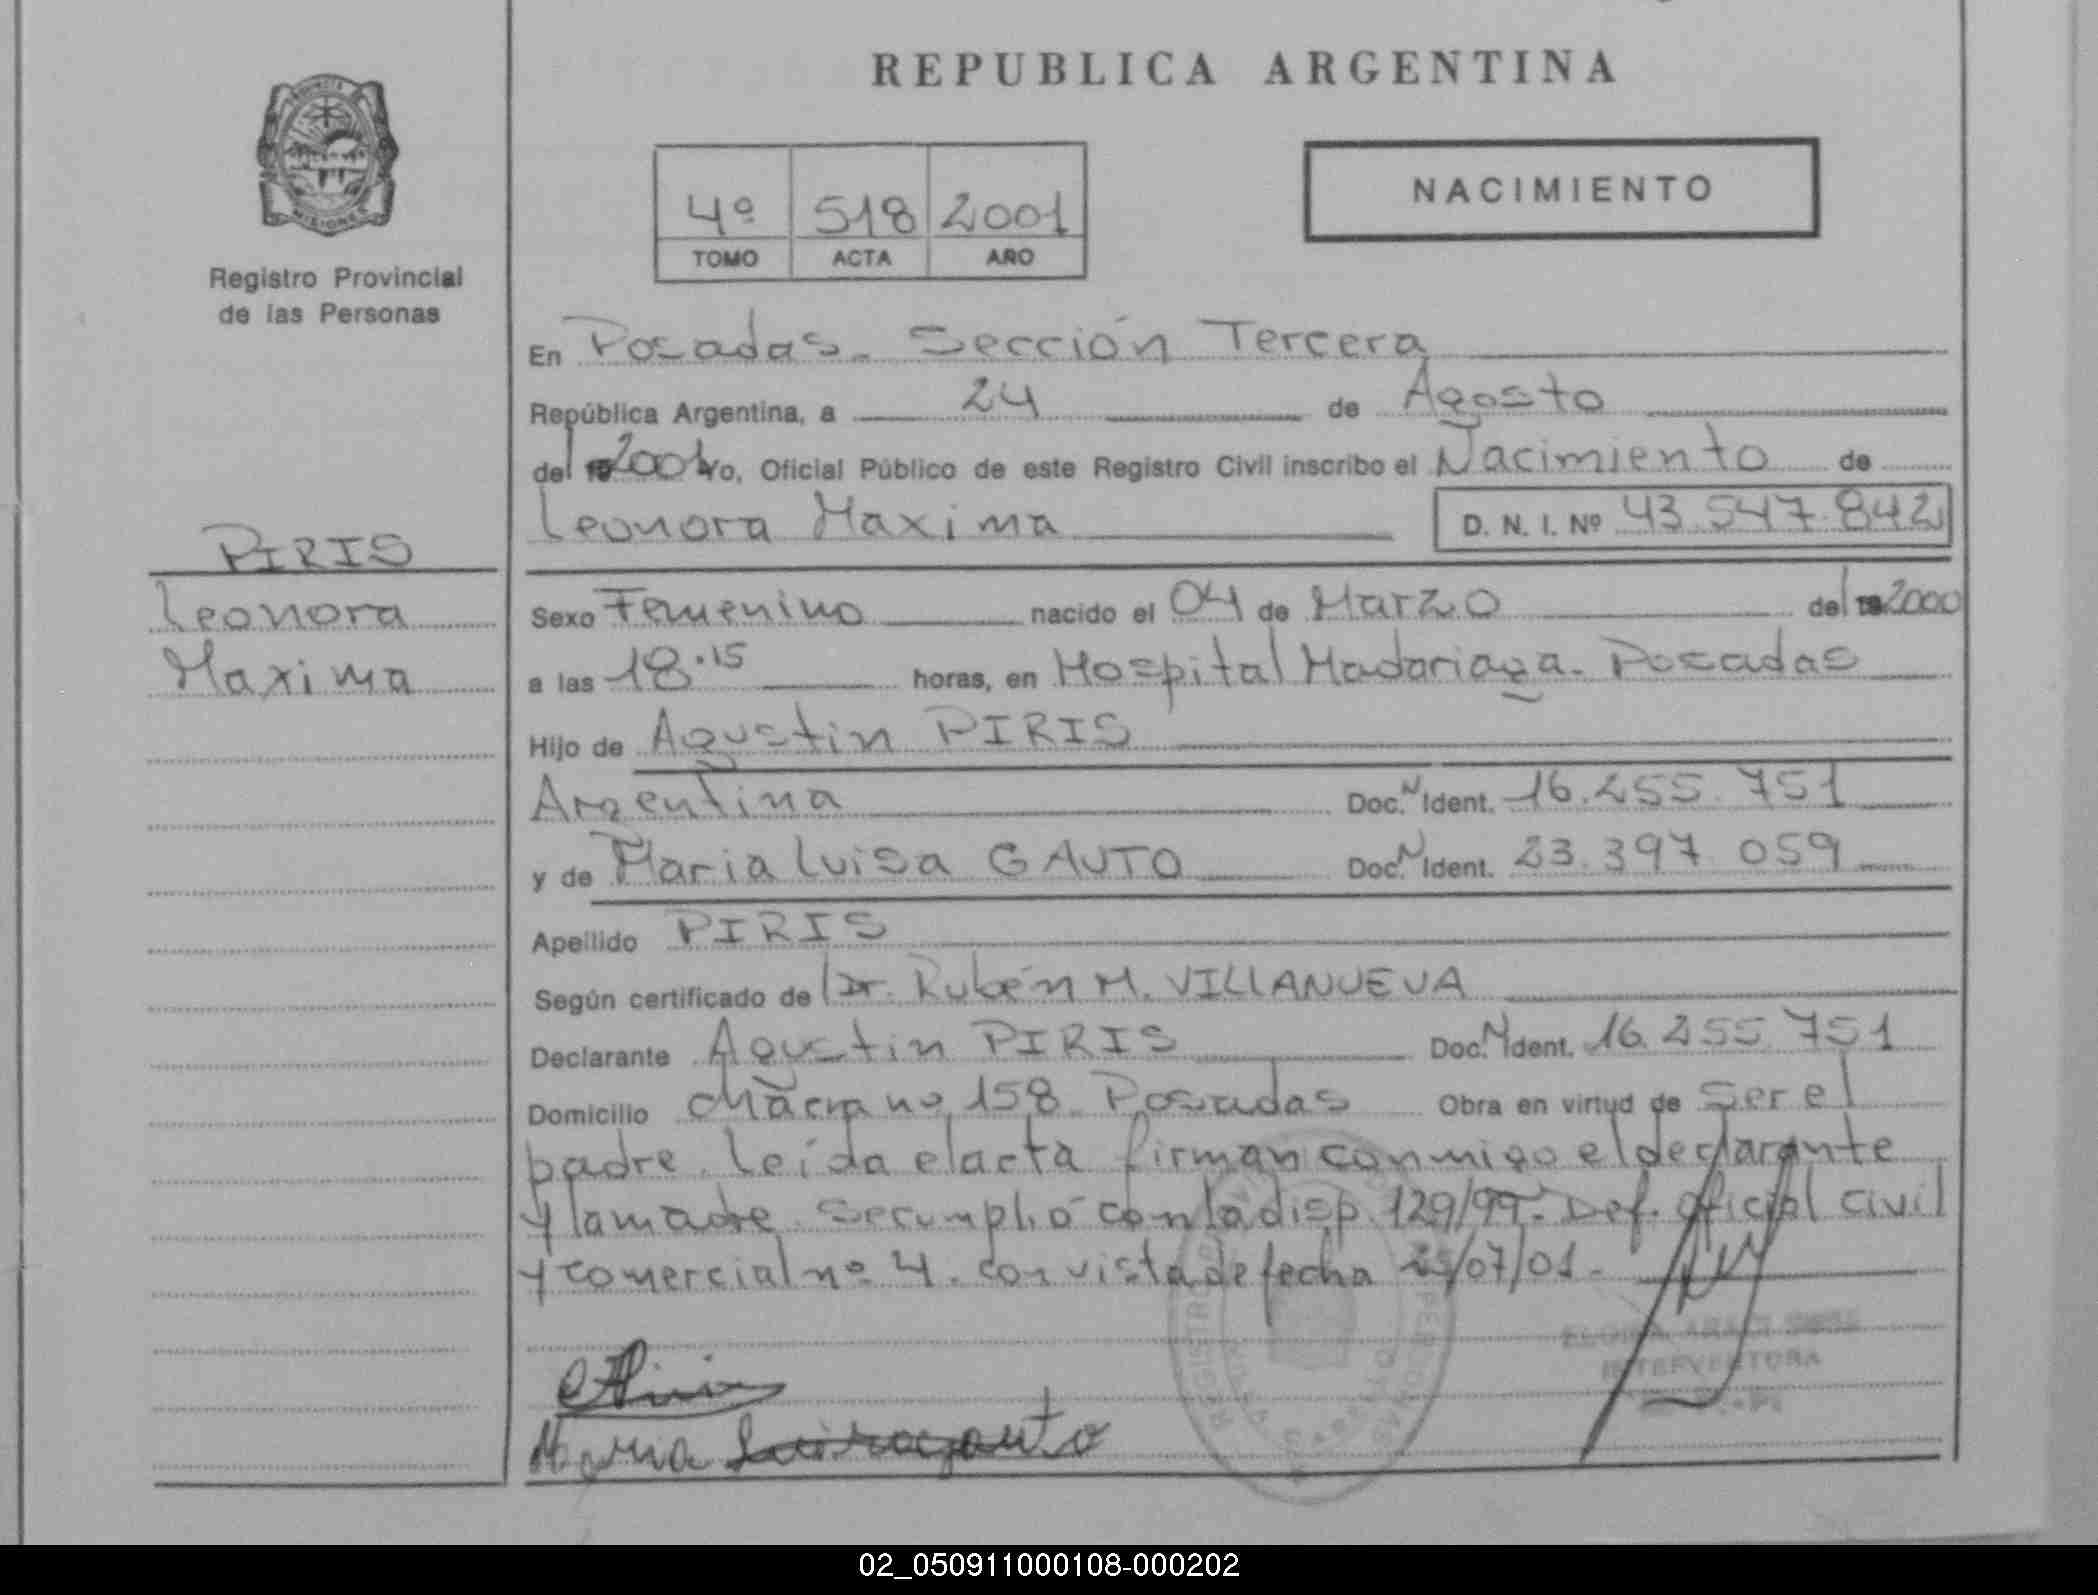 REPUBLICA ARGENTINA
NACIMIENTO
4º 518 2001
TOMO ACTA AÑO
PROVINCIA
MISIONES
Registro Provincial
de las Personas
PIRIS
Leonora
Maxima
En Posadas. Sección Tercera
República Argentina, a 24 de Agosto
del 2001 yo, Oficial Público de este Registro Civil inscribo el Nacimiento de
Leonora Maxima D. N. I. Nº 43.547.842
Sexo Femenino nacido el 04 de Marzo del 2000
a las 18.15 horas, en Hospital Madariaga. Posadas
Hijo de Agustin PIRIS
Argentina Doc. N Ident. 16.255.751
y de Maria Luisa GAUTO Doc. N Ident. 23.397.059
Apellido PIRIS
Según certificado de Dr. Rubén M. VILLANUEVA
Declarante Agustin PIRIS Doc. N Ident. 16.255.751
Domicilio chácra nº 158 Posadas Obra en virtud de Ser el
padre. Leída el acta firman conmigo el declarante
y la madre. Se cumplió con la disp. 129/99. Def. oficial civil
y comercial nº 4. con vista de fecha /07/01.
INTERVENTORA
Maria Luisa gauto
02_050911000108-000202